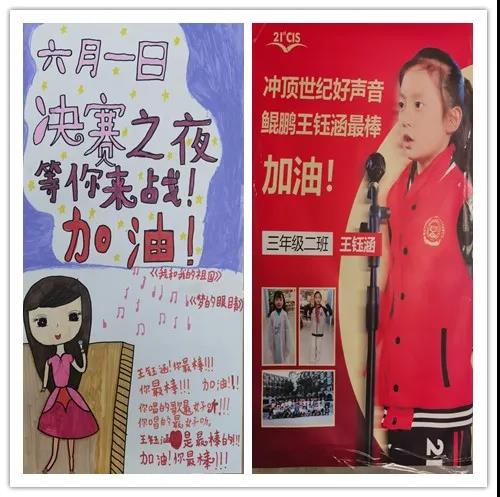 六月一日
决赛之夜
等你来战!
加油!
《我和我的祖国》
《梦的眼睛》
王钰涵!你最棒!!!
你最棒!!! 加油!!
你唱的歌最好听!!!
你唱的最好听。
王钰涵是最棒的!!!
加油!你最棒!!!
21stCIS
冲顶世纪好声音
鲲鹏王钰涵最棒
加油!
三年级二班 王钰涵